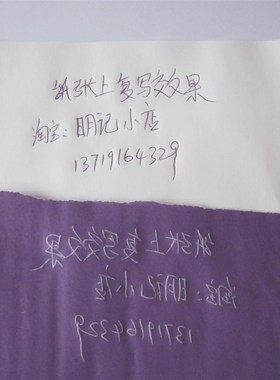 纸张上复写效果
淘宝:明记小店
13719164329
纸张上复写效果
淘宝:明记小店
13719164329